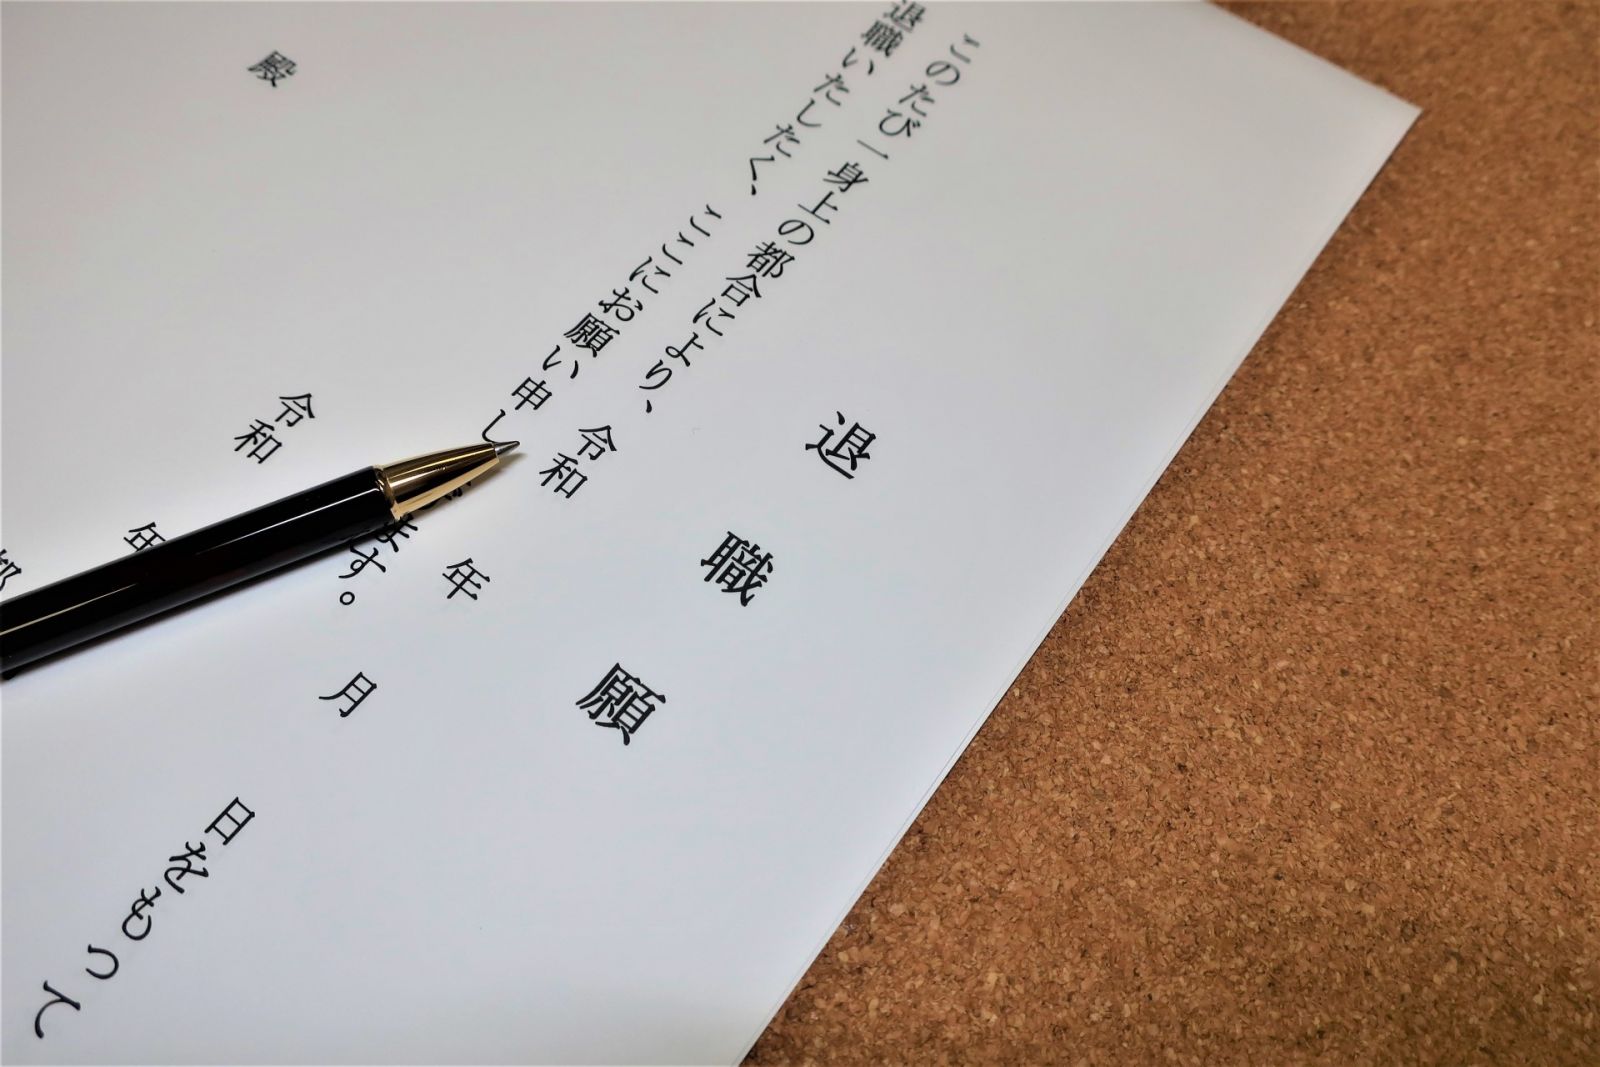 退職願
このたび一身上の都合により、令和　年　月　日をもって
退職いたしたく、ここにお願い申し　ます。
令和　年
殿